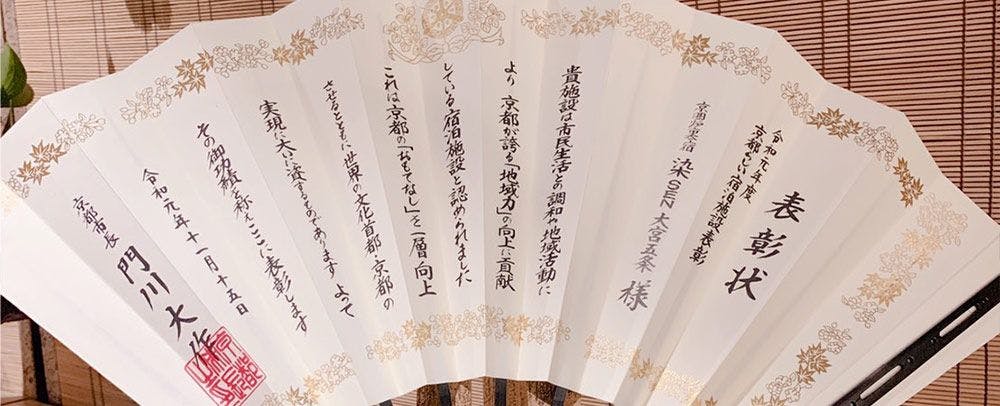 表彰状
令和元年度
京都らしい宿泊施設表彰
京町家の宿
染 SEN 大宮五条 様
貴施設は市民生活との調和や地域活動に
より京都が誇る「地域力」の向上に貢献
している宿泊施設と認められました
これは京都の「おもてなし」を一層向上
させるとともに世界の文化首都・京都の
実現に大いに資するものであります よって
その御功績を称えここに表彰します
令和元年十一月十五日
京都市長 門川大作